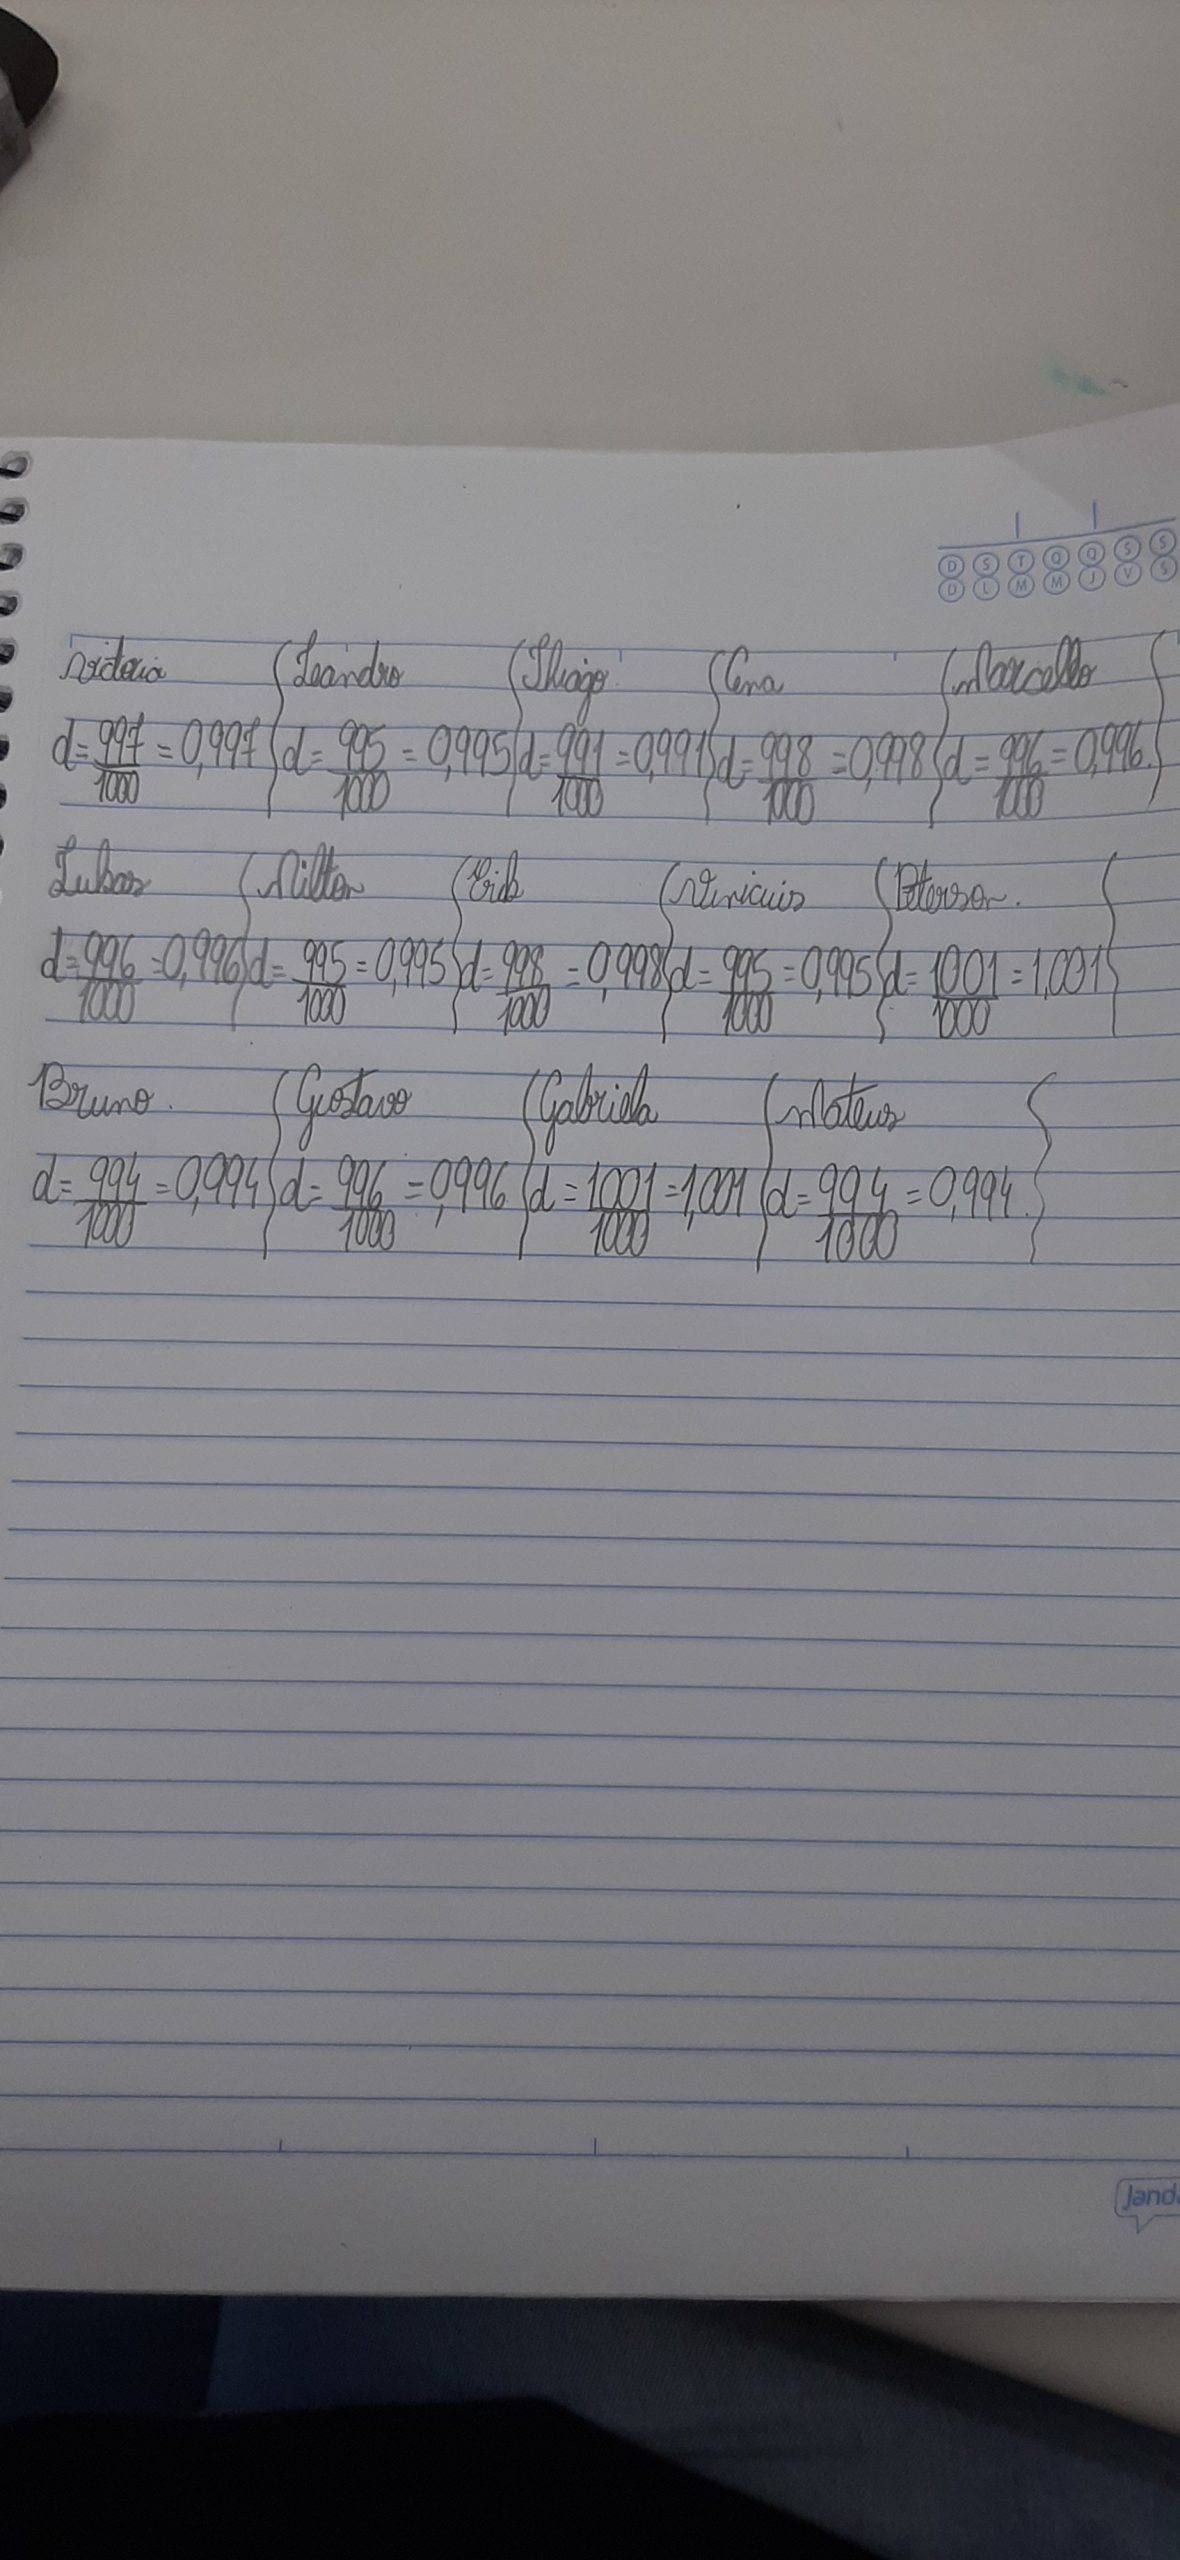 D S T Q Q S S
D L M M J V S
Victoria Leandro Thiago Ana Marcello
d=997/1000=0,997 d=995/1000=0,995 d=991/1000=0,991 d=998/1000=0,998 d=996/1000=0,996.
Lukas Nilton Erik Vinicius Peterson.
d=996/1000=0,996 d=995/1000=0,995 d=998/1000=0,998 d=995/1000=0,995 d=1001/1000=1,001
Bruno. Gustavo Gabriela Mateus
d=994/1000=0,994 d=996/1000=0,996 d=1001/1000=1,001 d=994/1000=0,994.